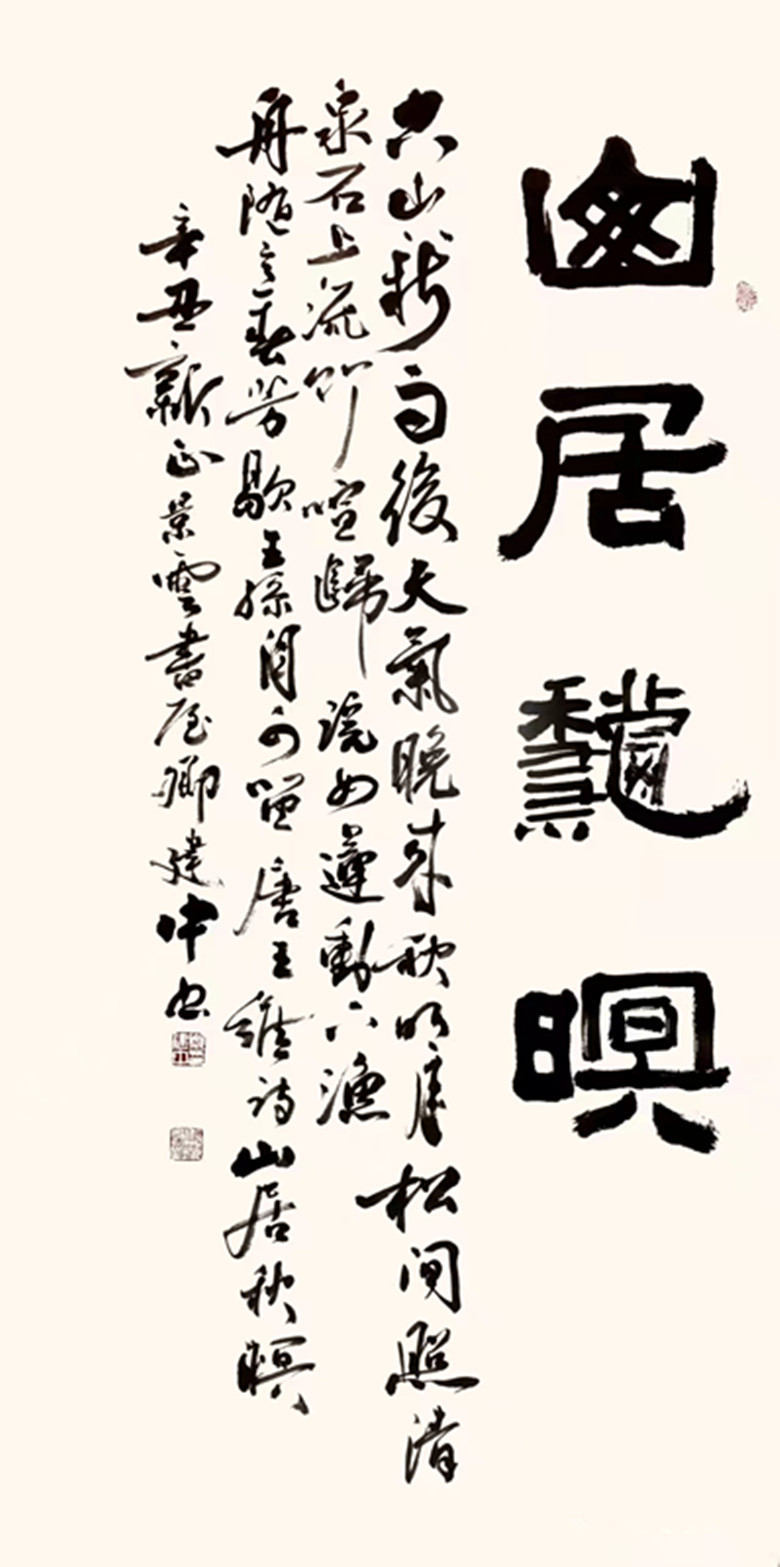 山居秋暝
空山新雨後天氣晚来秋明月松间照清
泉石上流竹喧歸浣女蓮動下漁
舟随意春芳歇王孫自可留唐王維詩山居秋暝
辛丑新正景雲書屋卿建中书